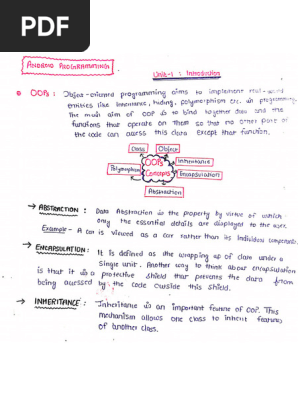 PDF
ANDROID PROGRAMMING
Unit-1 : Introduction
OOPs : Object-oriented programming aims to implement real-word
entities like Inheritance, hiding, polymorphism etc. in programming.
The main aim of OOP is to bind together data and the
functions that operate on them so that no other part of
the code can access this data except that function.
Data Object
OOPs Inheritance
Polymorphism Concepts Encapsulation
Abstraction
→ ABSTRACTION : Data Abstraction is the property by virtue of which
only the essential details are displayed to the user.
Example - A car is viewed as a car rather than its individual components.
→ ENCAPSULATION : It is defined as the wrapping up of data under a
single unit. Another way to think about encapsulation
is that it is a protective shield that prevents the data from
being accessed by the code outside this shield.
→ INHERITANCE : Inheritance is an important feature of OOP. This
mechanism allows one class to inherit features
of another class.